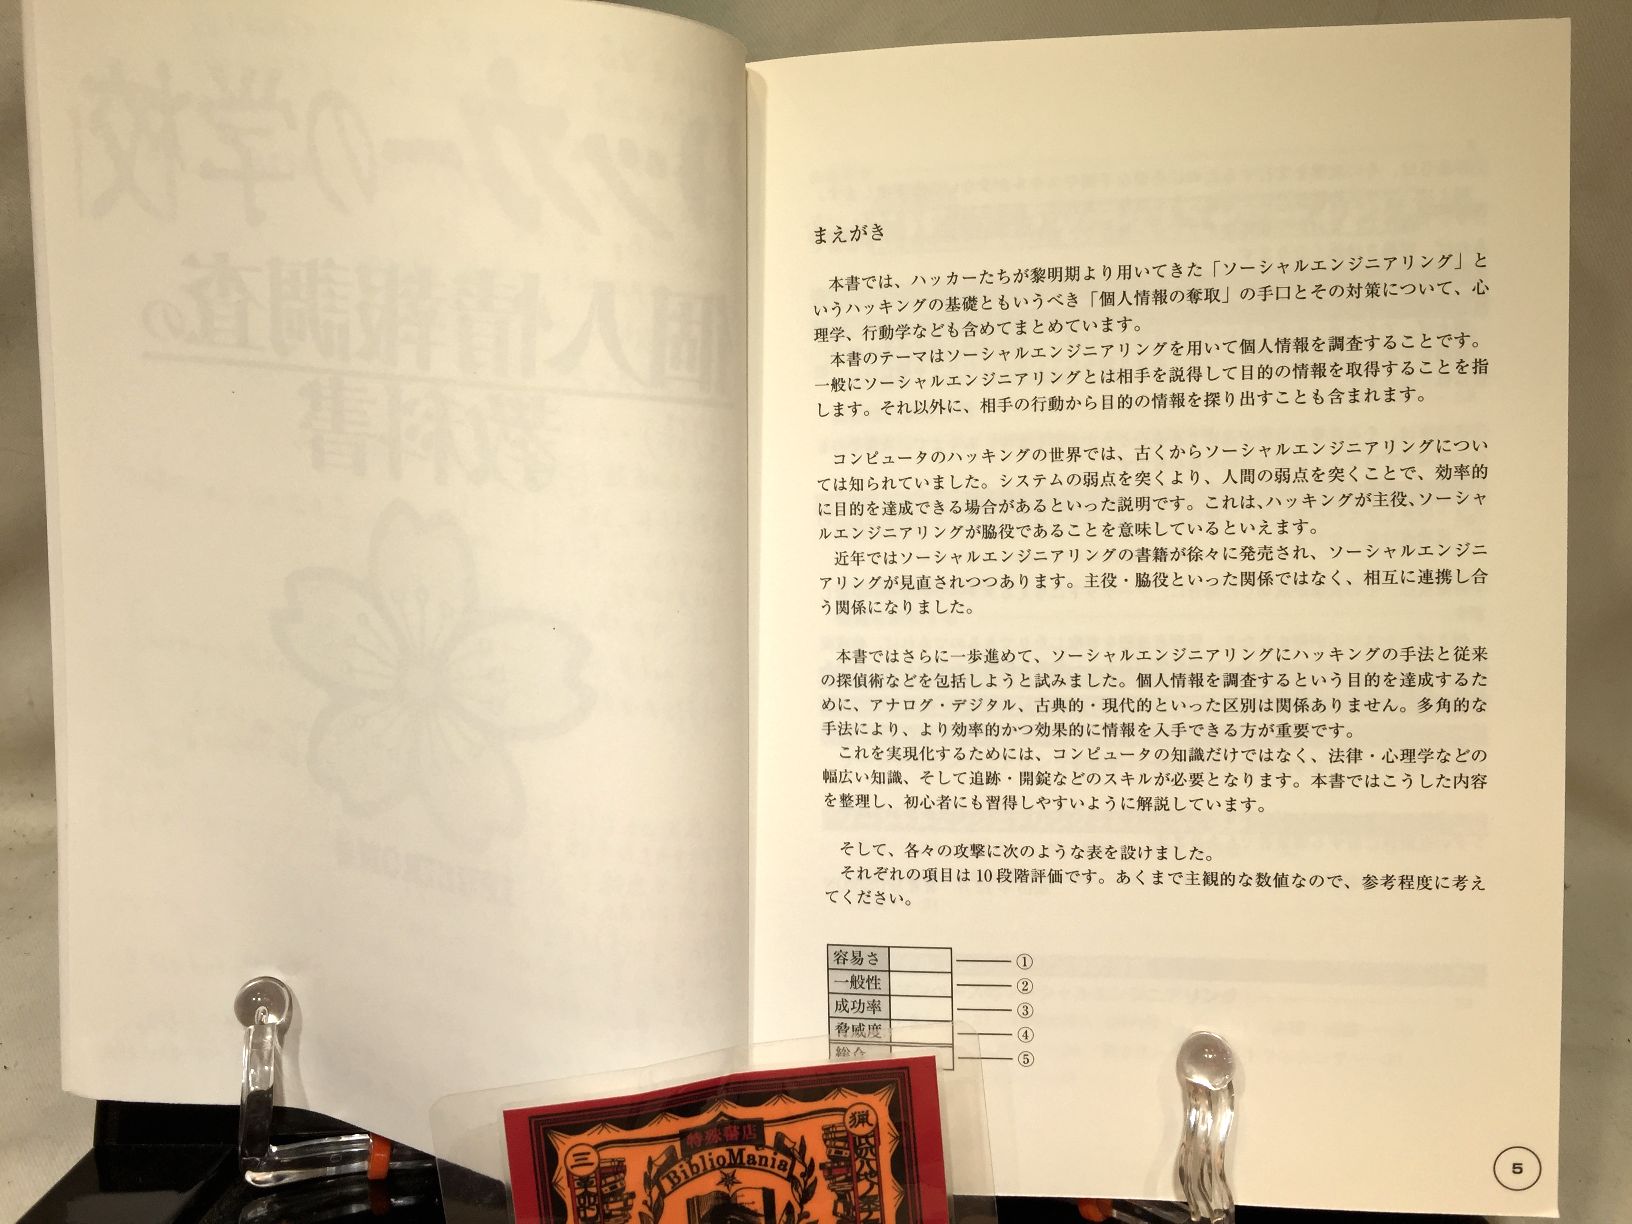 まえがき
本書では、ハッカーたちが黎明期より用いてきた「ソーシャルエンジニアリング」と
いうハッキングの基礎ともいうべき「個人情報の奪取」の手口とその対策について、心
理学、行動学なども含めてまとめています。
本書のテーマはソーシャルエンジニアリングを用いて個人情報を調査することです。
一般にソーシャルエンジニアリングとは相手を説得して目的の情報を取得することを指
します。それ以外に、相手の行動から目的の情報を探り出すことも含まれます。
コンピュータのハッキングの世界では、古くからソーシャルエンジニアリングについ
ては知られていました。システムの弱点を突くより、人間の弱点を突くことで、効率的
に目的を達成できる場合があるといった説明です。これは、ハッキングが主役、ソーシャ
ルエンジニアリングが脇役であることを意味しているといえます。
近年ではソーシャルエンジニアリングの書籍が徐々に発売され、ソーシャルエンジニ
アリングが見直されつつあります。主役・脇役といった関係ではなく、相互に連携し合
う関係になりました。
本書ではさらに一歩進めて、ソーシャルエンジニアリングにハッキングの手法と従来
の探偵術などを包括しようと試みました。個人情報を調査するという目的を達成するた
めに、アナログ・デジタル、古典的・現代的といった区別は関係ありません。多角的な
手法により、より効率的かつ効果的に情報を入手できる方が重要です。
これを実現化するためには、コンピュータの知識だけではなく、法律・心理学などの
幅広い知識、そして追跡・開錠などのスキルが必要となります。本書ではこうした内容
を整理し、初心者にも習得しやすいように解説しています。
そして、各々の攻撃に次のような表を設けました。
それぞれの項目は10段階評価です。あくまで主観的な数値なので、参考程度に考え
てください。
容易さ ①
一般性 ②
成功率 ③
脅威度 ④
総合 ⑤
特殊書店
BiblioMania
三
猟
5